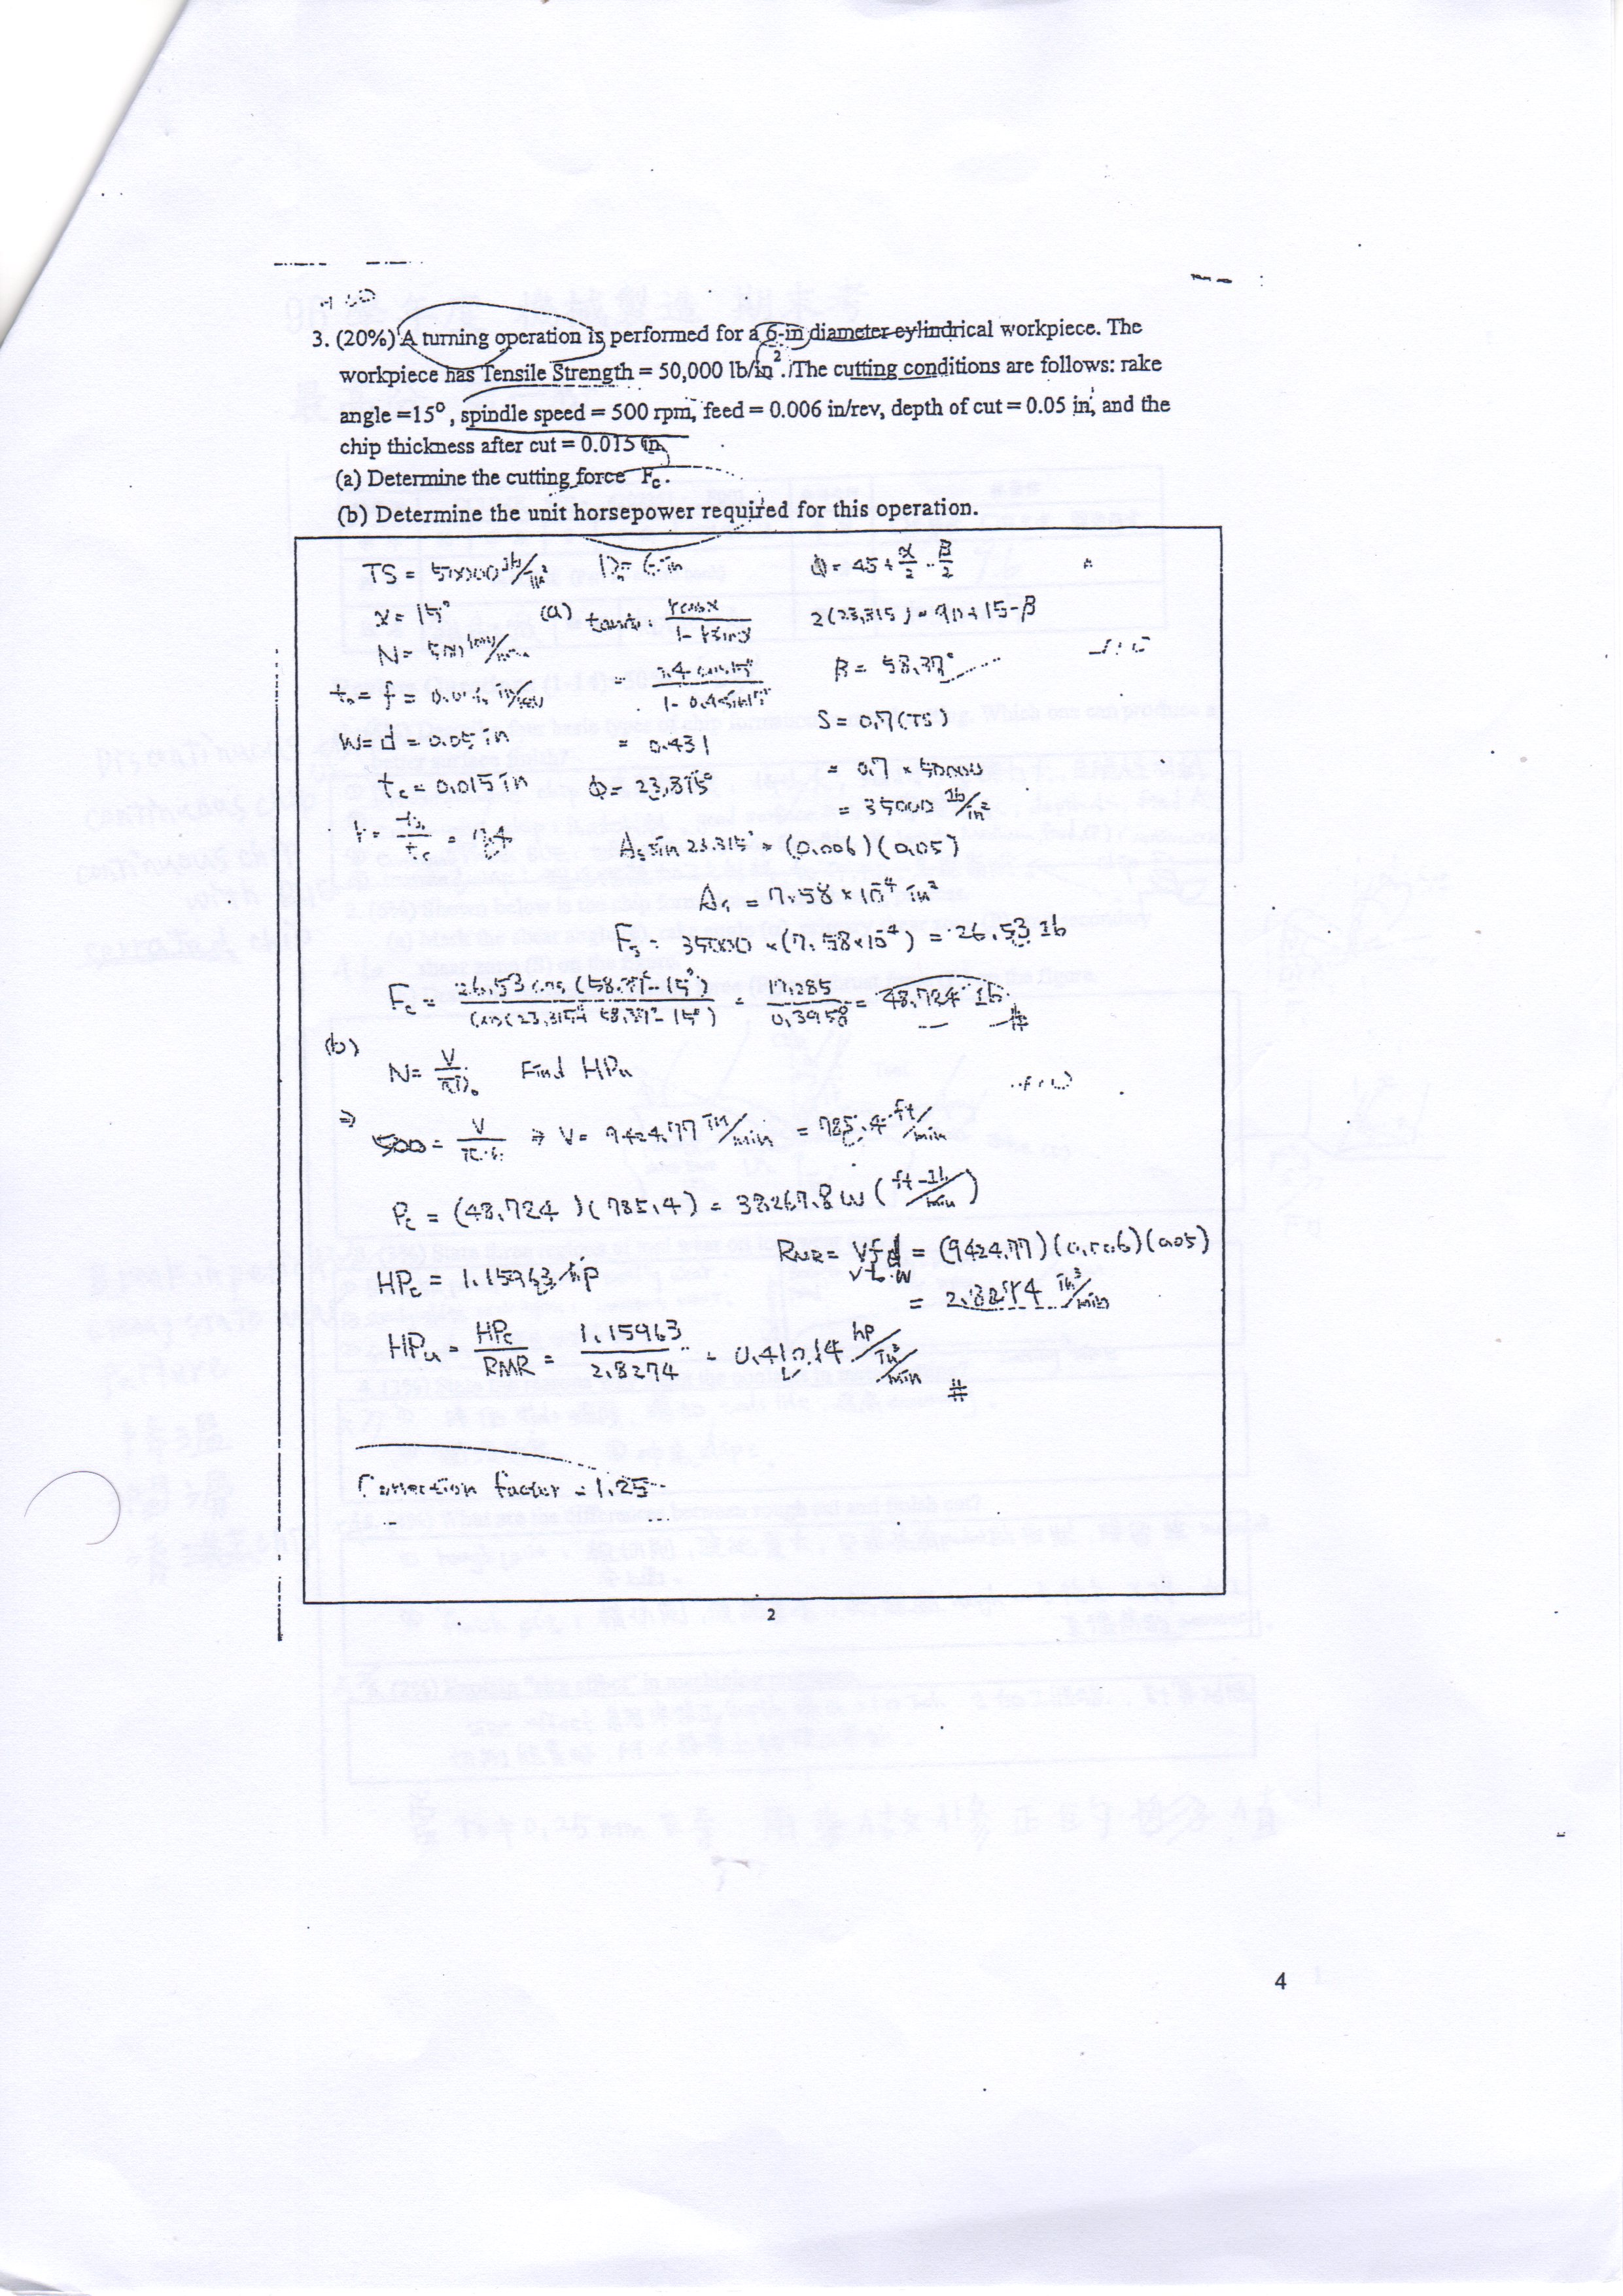 3. (20%) A turning operation is performed for a 6-in diameter cylindrical workpiece. The
workpiece has Tensile Strength = 50,000 lb/in². The cutting conditions are follows: rake
angle =15°, spindle speed = 500 rpm, feed = 0.006 in/rev, depth of cut = 0.05 in, and the
chip thickness after cut = 0.015 in.
(a) Determine the cutting force Fc.
(b) Determine the unit horsepower required for this operation.
TS = 50000 lb/in² D₀ = 6 in
α = 15°
N = 500 rev/min
t₀ = f = 0.006 in/rev
W = d = 0.05 in
tc = 0.015 in
r = t₀/tc = 0.4
(a) tanφ = rcosα / 1-rsinα
= 0.4 cos15° / 1-0.4sin15°
= 0.431
φ = 23.315°
φ = 45 + α/2 - β/2
2(23.315) = 90+15-β
β = 58.37°
S = 0.7(TS)
= 0.7 × 50000
= 35000 lb/in²
As sin 23.315° = (0.006)(0.05)
As = 7.58×10⁻⁴ in²
Fs = 35000 × (7.58×10⁻⁴) = 26.53 lb
Fc = 26.53 cos (58.37°-15°) / cos(23.315°+58.37°-15°) = 19.285 / 0.3958 = 48.724 lb #
(b)
N = V/πD₀ Find HPu
⇒ 500 = V/π·6 ⇒ V = 9424.77 in/min = 785.4 ft/min
Pc = (48.724)(785.4) = 38267.8 W (ft-lb/min)
HPc = 1.15963 hp
RMR = Vfd = (9424.77)(0.006)(0.05)
vt₀w
= 2.8274 in³/min
HPu = HPc/RMR = 1.15963/2.8274 = 0.41014 hp/in³/min #
Correction factor = 1.25
2
4